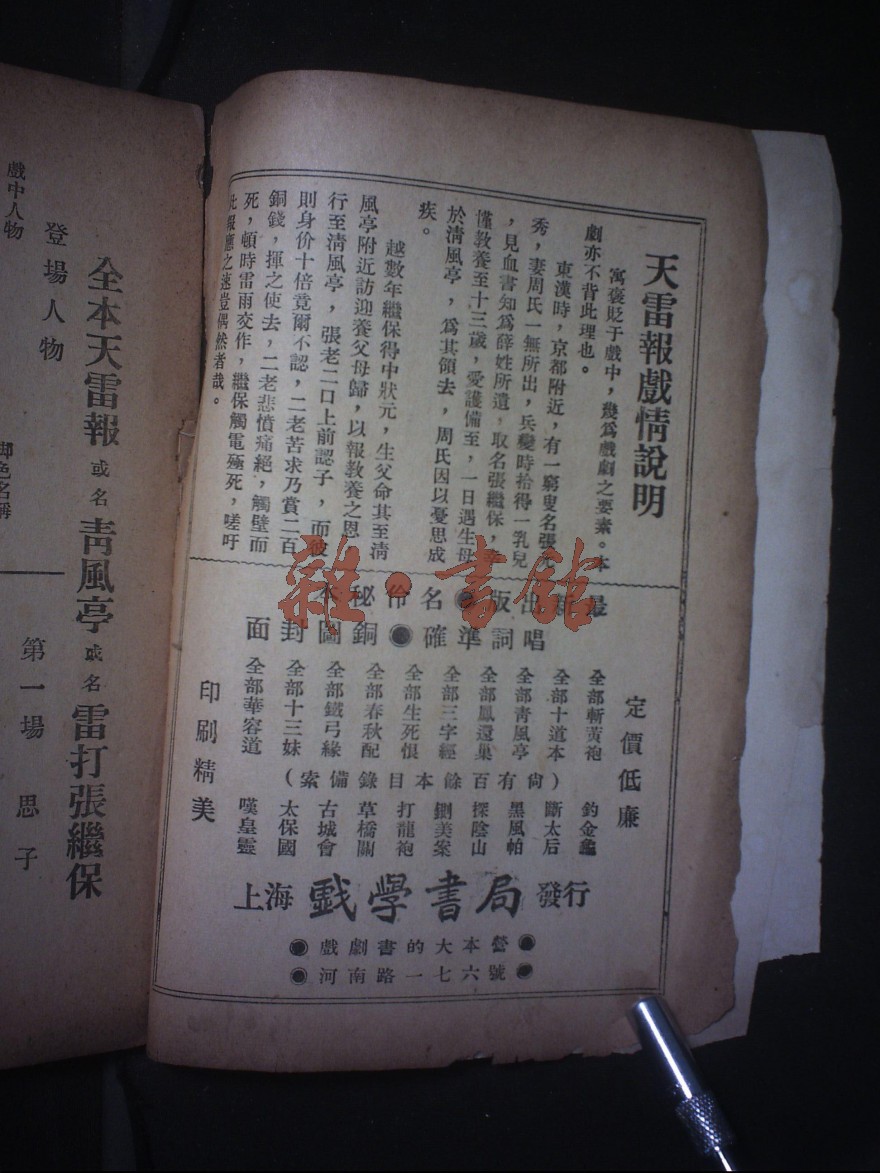 天雷報戲情說明
寓褒貶于戲中，幾爲戲劇之要素。本
劇亦不背此理也。
東漢時，京都附近，有一窮叟名張元
秀，妻周氏一無所出，兵變時拾得一乳兒
，見血書知爲薛姓所遺，取名張繼保，
僅教養至十三歲，愛護備至，一日遇生母
於淸風亭，爲其領去，周氏因以憂思成
疾。
越數年繼保得中狀元，生父命其至淸
風亭附近訪迎養父母歸，以報教養之恩
行至淸風亭，張老二口上前認子，而彼
則身价十倍竟爾不認，二老苦求乃賞二百
銅錢，揮之使去，二老悲憤痛絕，觸壁而
死，頓時雷雨交作，繼保觸電殛死，嗟吁
此報應之速豈偶然者哉。
最新出版
唱詞準確
名伶秘本
銅圖封面
定價低廉
全部斬黃袍 釣金龜
全部十道本 斷太后
全部靑風亭 黑風帕
全部鳳還巢 探陰山
全部三字經 鍘美案
全部生死恨 打龍袍
全部春秋配 草橋關
全部鐵弓緣 古城會
全部十三妹 太保國
全部華容道 嘆皇靈
（尙有百餘本目錄備索）
印刷精美
上海 戲學書局 發行
戲劇書的大本營
河南路一七六號
全本天雷報 或名 靑風亭 或名 雷打張繼保
登場人物
第一場 思子
戲中人物
脚色名稱
雜·書館